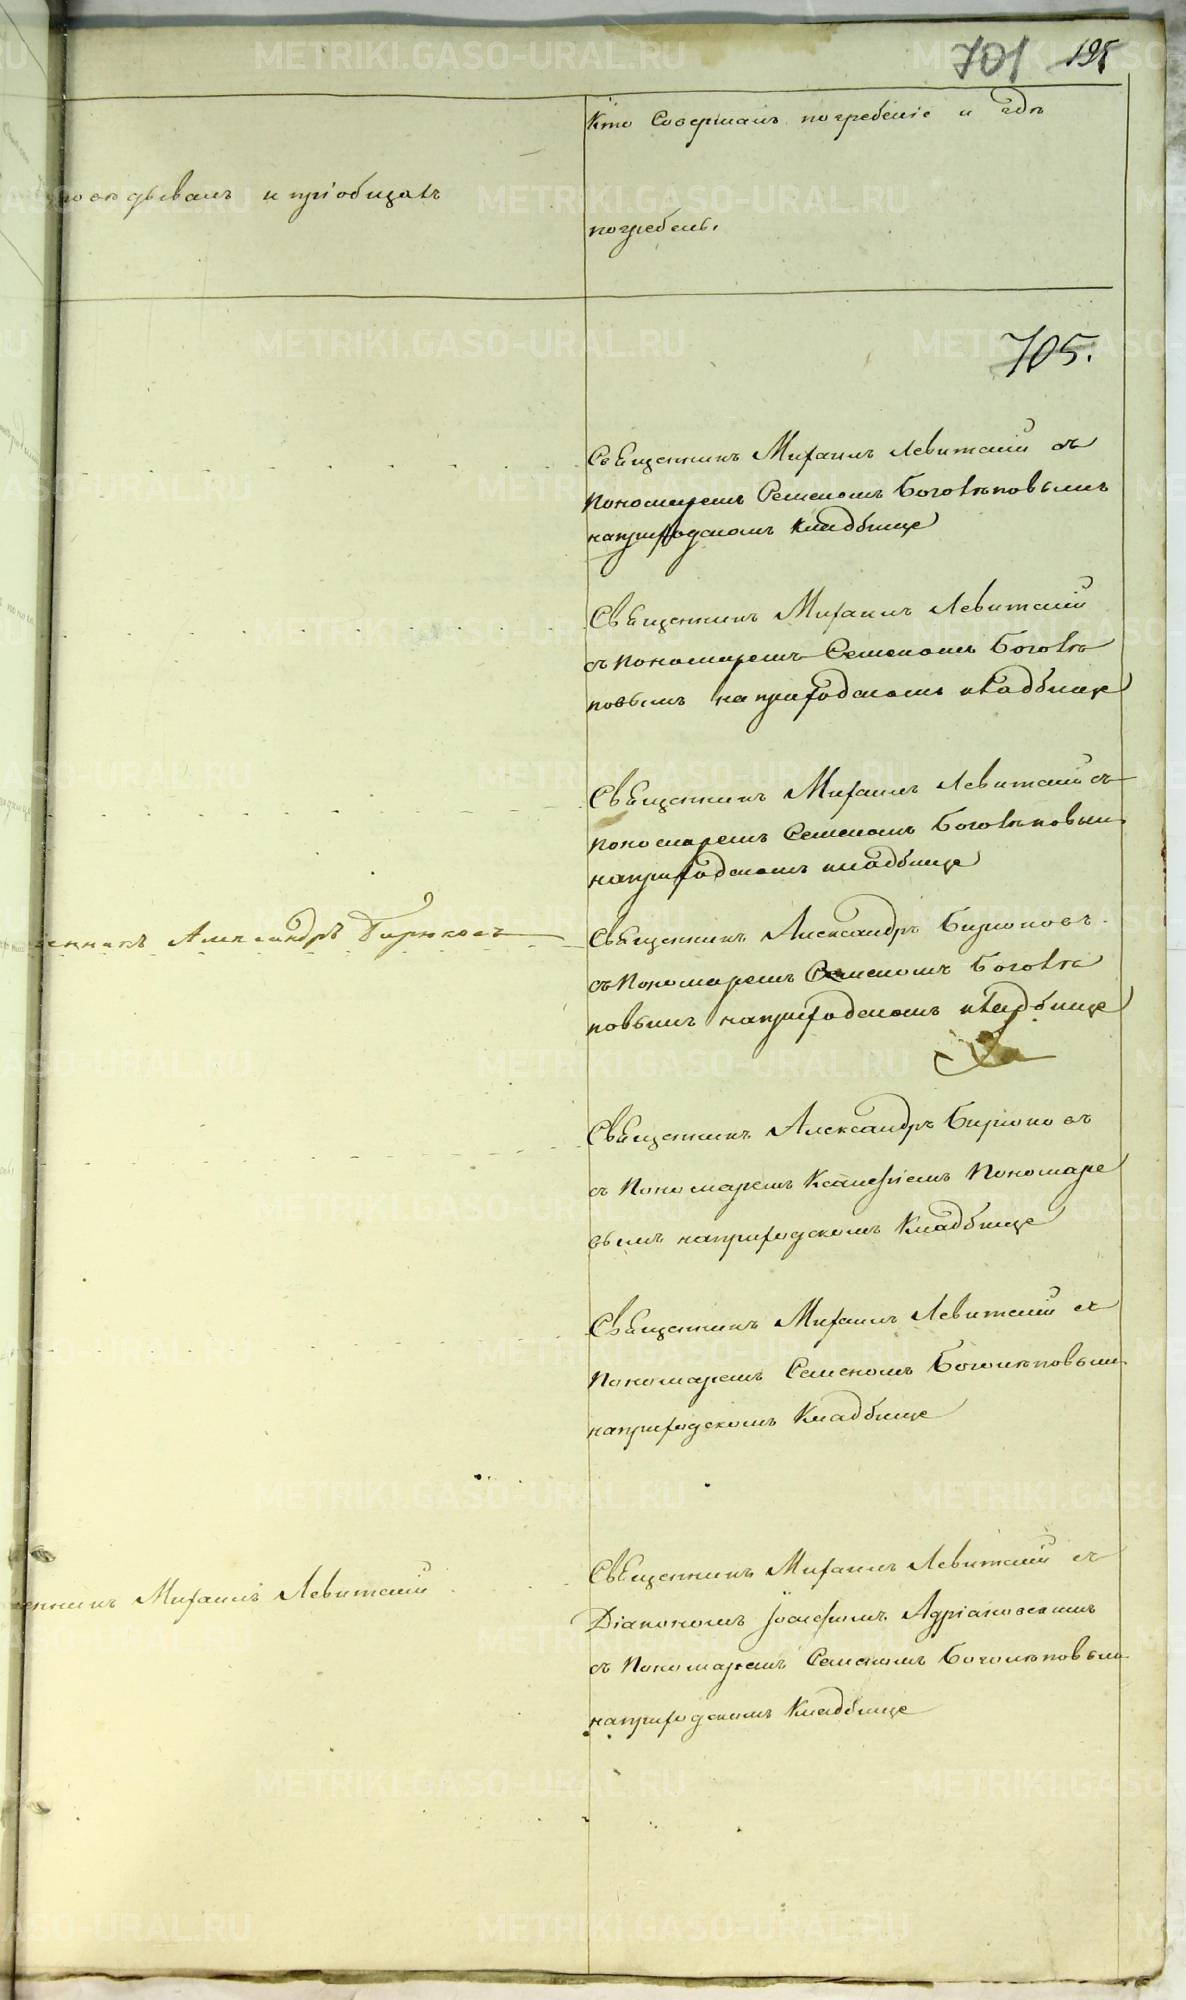 701 195
Кто Совершалъ погребенiе и гдѣ
исповѣдывалъ и прiобщалъ
погребены.
705.
Священникъ Михаилъ Левитскiй съ
Пономаремъ Семеномъ Боголѣповымъ
наприходскомъ кладбище
Священникъ Михаилъ Левитскiй
съ Пономаремъ Семеномъ Боголѣ
повымъ наприходскомъ кладбище
Священникъ Михаилъ Левитскiй съ
Пономаремъ Семеномъ Боголѣповым
наприходскомъ кладбище
енникъ Александръ Бирюковъ
Священникъ Александръ Бирюковъ
съ Пономаремъ Семеномъ Боголѣ
повымъ наприходскомъ кладбище
Священникъ Александръ Бирюковъ
съ Пономаремъ Ксанфiемъ Пономаре
вымъ наприходскомъ Кладбище
Священникъ Михаилъ Левитскiй съ
Пономаремъ Семеномъ Боголѣповым
наприходскомъ Кладбище
енникъ Михаилъ Левитскiй
Священникъ Михаилъ Левитскiй съ
Дiакономъ Iосифомъ Адрiановскимъ
съ Пономаремъ Семеномъ Боголѣповым
наприходскомъ Кладбище
METRIKI.GASO-URAL.RU